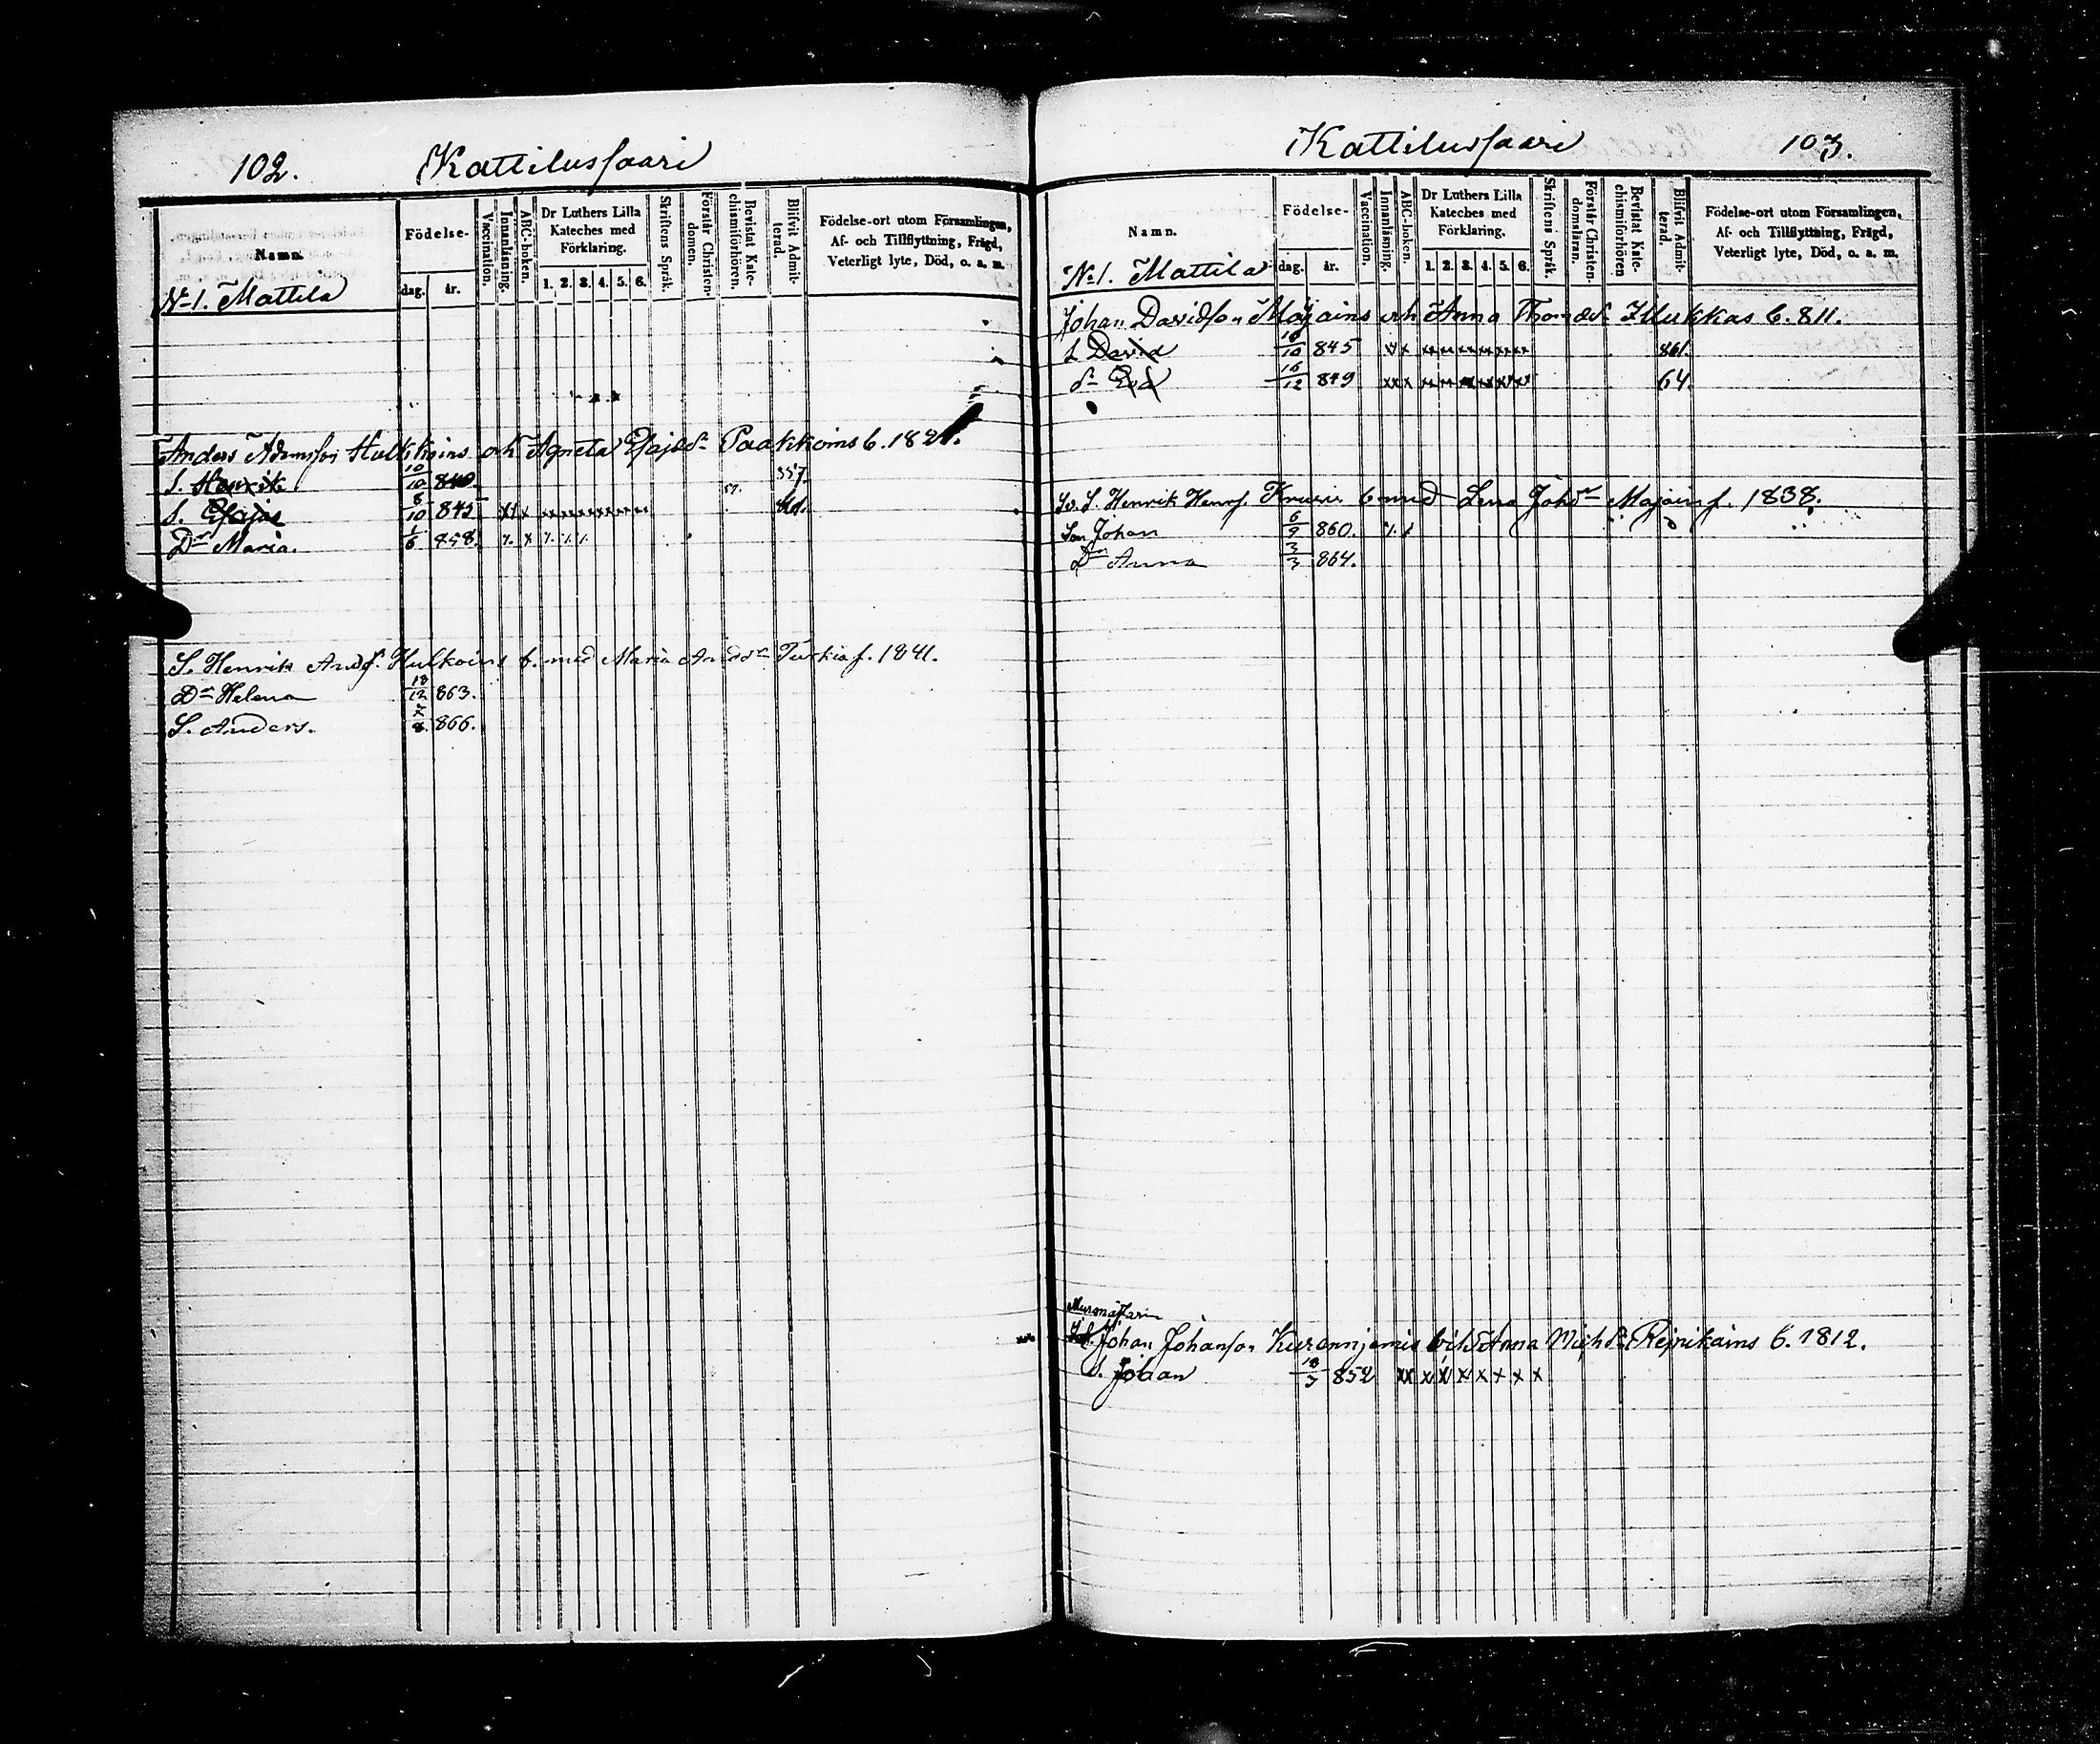 102. Kattilusfaari
Namn. Födelse- dag. år. Vaccination. Innanläsning. ABC-boken. Dr Luthers Lilla Kateches med Förklaring. 1. 2. 3. 4. 5. 6. Skriftens Språk. Förstår Christendomen. Bevistat Katechismiförhören. Blifvit Admitterad. Födelse-ort utom Församlingen, Af- och Tillflyttning, Frägd, Veterligt lyte, Död, o. a. m.
No 1. Mattila
Anders Adamsson Hulkkoins och Agneta Esajæd:r Paakkoins b. 1821.
S. Henrik 10/10 840. 57. 857.
S. Esajas 8/10 845 x x x x x x x x x x x 861.
D:r Maria. 1/6 858. x x x x x
S. Henrik Andss. Hulkoins b. med Maria Andsd:r Turkia f. 1841.
D:r Helena 18/12 863.
S. Anders. 7/8. 866.
Kattilusfaari 103.
Namn. Födelse- dag. år. Vaccination. Innanläsning. ABC-boken. Dr Luthers Lilla Kateches med Förklaring. 1. 2. 3. 4. 5. 6. Skriftens Språk. Förstår Christendomsläran. Bevistat Katechismiförhören Blifvit Admitterad. Födelse-ort utom Församlingen, Af- och Tillflyttning, Frägd, Veterligt lyte, Död, o. a. m.
No 1. Mattila
Johan Davidson Mojains och Anna Thomæd:r Hukkas b. 811.
S David 18/10 845 x x x x x x x x 861.
d:r Eva 16/12 849 x x x x x x x x x 64
Sv. S. Henrik Henrs. b. med Lena Johd:r Mojain f. 1838.
Son Johan 6/9 860.
D:r Anna 3/3 864.
Johan Johanson b. Anna Michd:r Repikains b. 1812.
S. Johan 18/3 852 x x x x x x x x